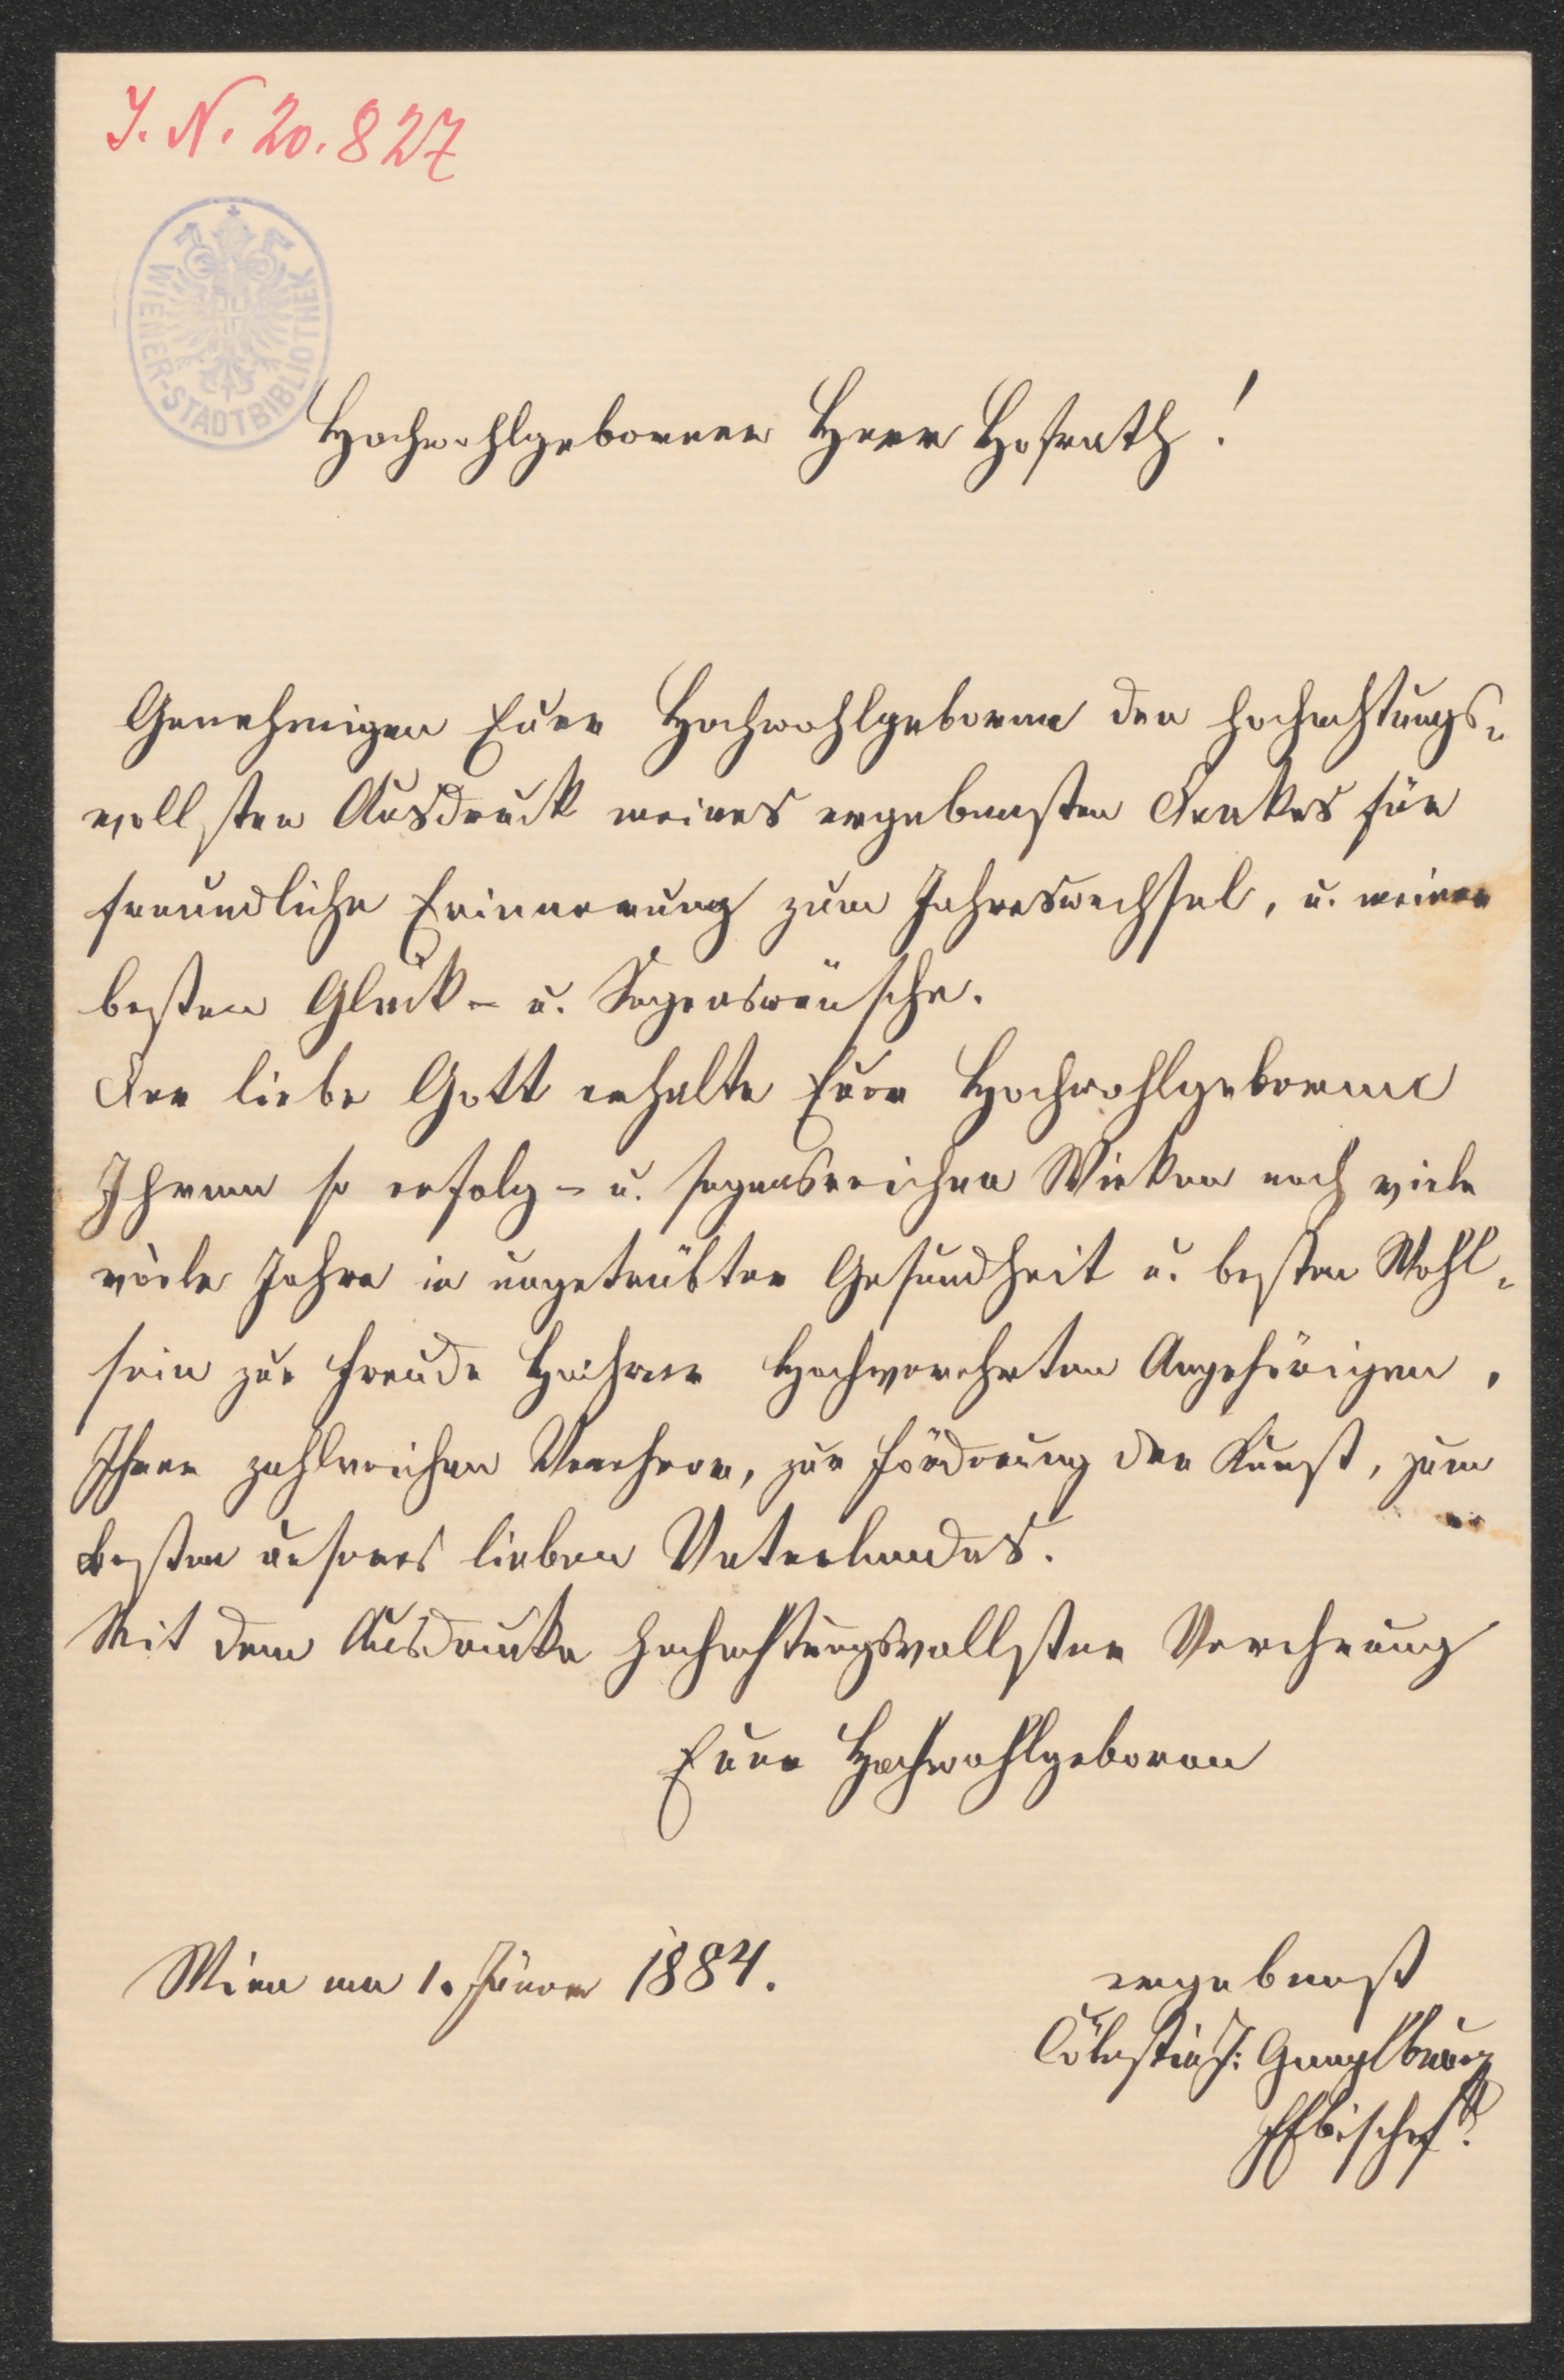 I. N. 20.827
WIENER-STADTBIBLIOTHEK
Hochwohlgeborner Herr Hofrath!
Genehmigen Euer Hochwohlgeboren den hochachtungs-
vollsten Ausdruck meines ergebensten Dankes für
freundliche Erinnerung zum Jahreswechsel, u. meiner
besten Glück- u. Segenswünsche.
Der liebe Gott erhalte Euer Hochwohlgeboren
Ihrem so erfolg- u. segensreichen Wirken noch viele
viele Jahre in ungetrübter Gesundheit u. besten Wohl-
sein zur Freude Hochverehrten Angehörigen,
Ihrer zahlreichen Verehrer, zur Förderung der Kunst, zum
Besten unseres lieben Vaterlandes.
Mit dem Ausdrucke hochachtungsvollster Verehrung
Euer Hochwohlgeboren
Wien am 1. Jänner 1884.
ergebenst
Cölestin J: Ganglbauer
FEbischof.